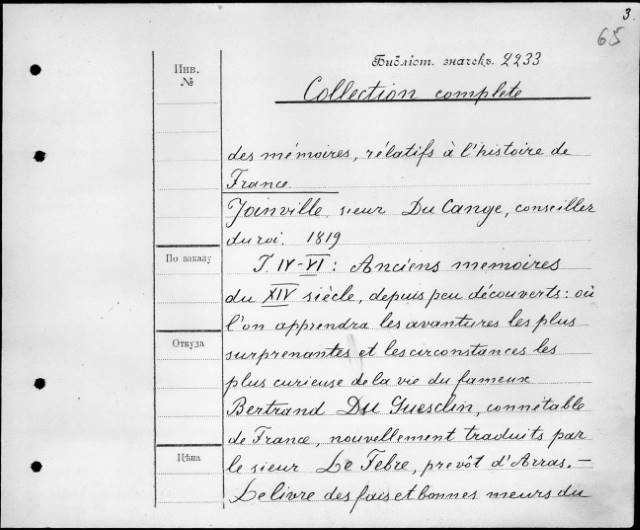 3.
65
Библіот. значекъ. 2233
Инв.
№
Collection complete
des mémoires, rélatifs à l'histoire de
France.
Joinville, sieur Du Cange, conseiller
du roi. 1819
По заказу
T. IV-VI: Anciens memoires
du XIV siècle, depuis peu découverts: où
l'on apprendra les avantures les plus
Откуда
surprenantes et les circonstances les
plus curieuse de la vie du fameux
Bertrand Du Guesclin, connétable
de France, nouvellement traduits par
Цѣна
le sieur Le Febre, prevôt d'Arras. —
Le livre des fais et bonnes meurs du